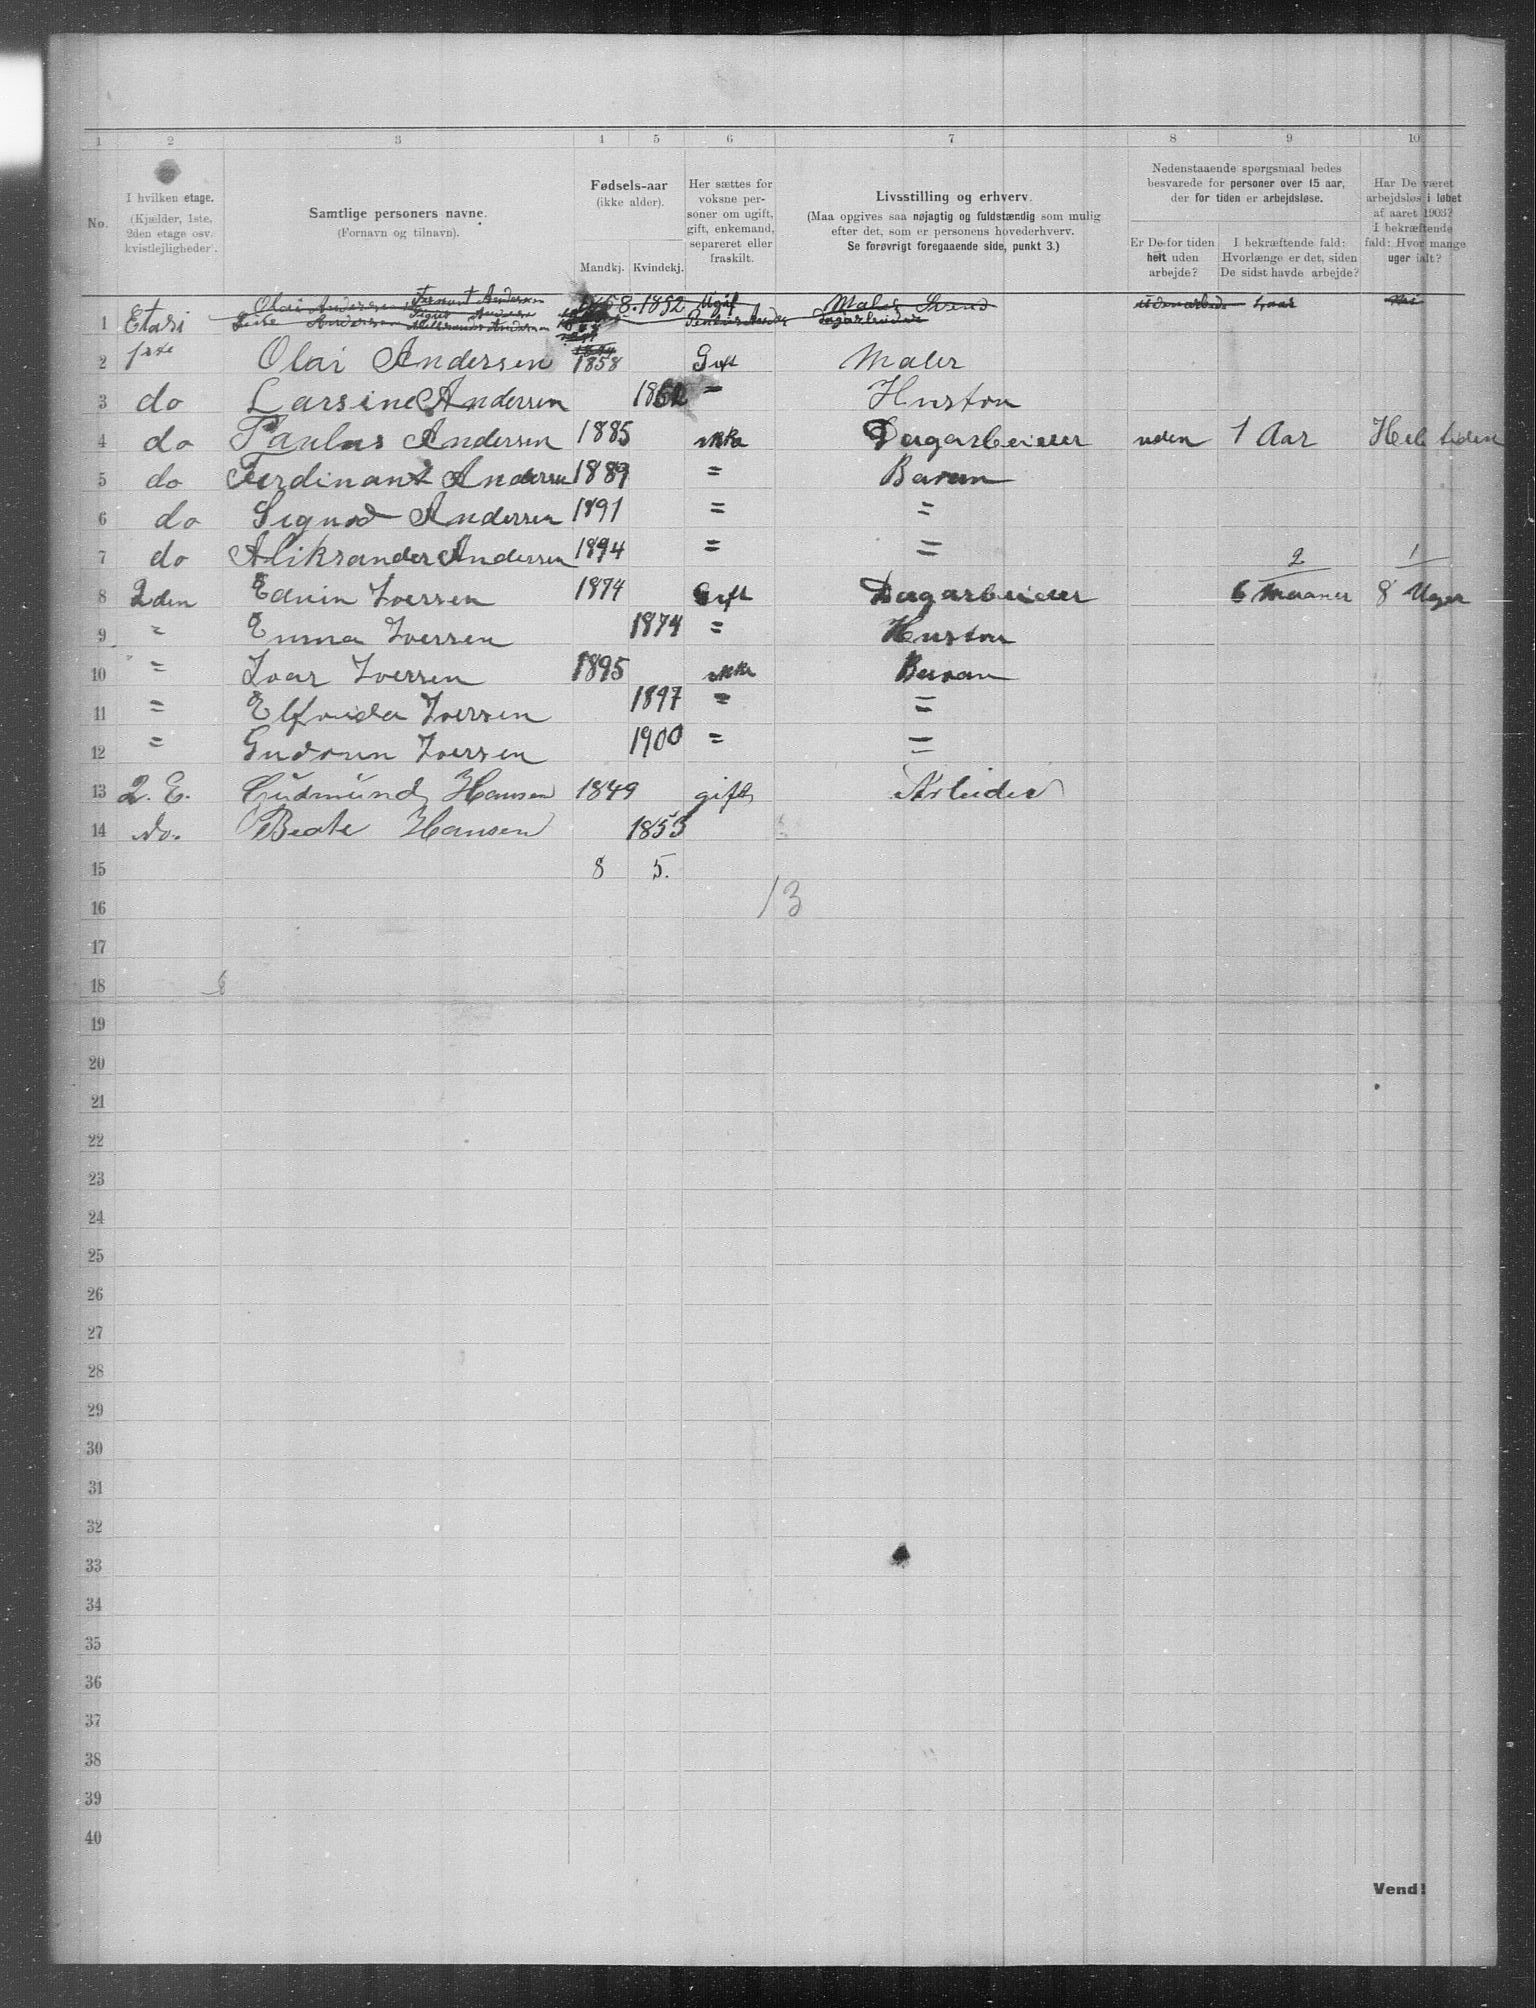 1 2 3 4 5 6 7 8 9 10
No.
I hvilken etage.
(Kjælder, 1ste,
2den etage osv.
kvistlejligheder.
Samtlige personers navne.
(Fornavn og tilnavn).
Fødsels-aar
(ikke alder).
Mandkj. Kvindekj.
Her sættes for
voksne per-
soner om ugift,
gift, enkemand,
separeret eller
fraskilt.
Livsstilling og erhverv.
(Maa opgives saa nøjagtig og fuldstændig som mulig
efter det, som er personens hovederhverv.
Se forøvrigt foregaaende side, punkt 3.)
Nedenstaaende spørgsmaal bedes
besvarede for personer over 15 aar,
der for tiden er arbejdsløse.
Er De for tiden
helt uden
arbejde?
I bekræftende fald:
Hvorlænge er det, siden
De sidst havde arbejde?
Har De været
arbejdsløs i løbet
af aaret 1903?
I bekræftende
fald: Hvor mange
uger ialt?
Olai Andersen Andersen 1852 Ugift Maler Svend
1 Etasi Andersen Andersen
2 1ste Olai Andersen 1858 Gift Maler
3 do Larsine Andersen 1862 " Hustru
4 do Paulus Andersen 1885 ikke Dagarbeider uden 1 Aar Hele tiden
5 do Ferdinant Andersen 1889 = Baren
6 do Sigurd Andersen 1891 = =
7 do Aliksander Andersen 1894 = = 2 1
8 2den Edvin Iversen 1874 Gift Dagarbeider 6 Maaner 8 Uger
9 " Emma Iversen 1874 = Hustru
10 = Ivar Iversen 1895 ikke Baran
11 = Elfrida Iversen 1897 = =
12 = Gudrun Iversen 1900 = =
13 2. E. Gudmund Hansen 1849 gift Arbeider
14 do. Beate Hansen 1853
15 8 5.
16 13
17
18
19
20
21
22
23
24
25
26
27
28
29
30
31
32
33
34
35
36
37
38
39
40
Vend!